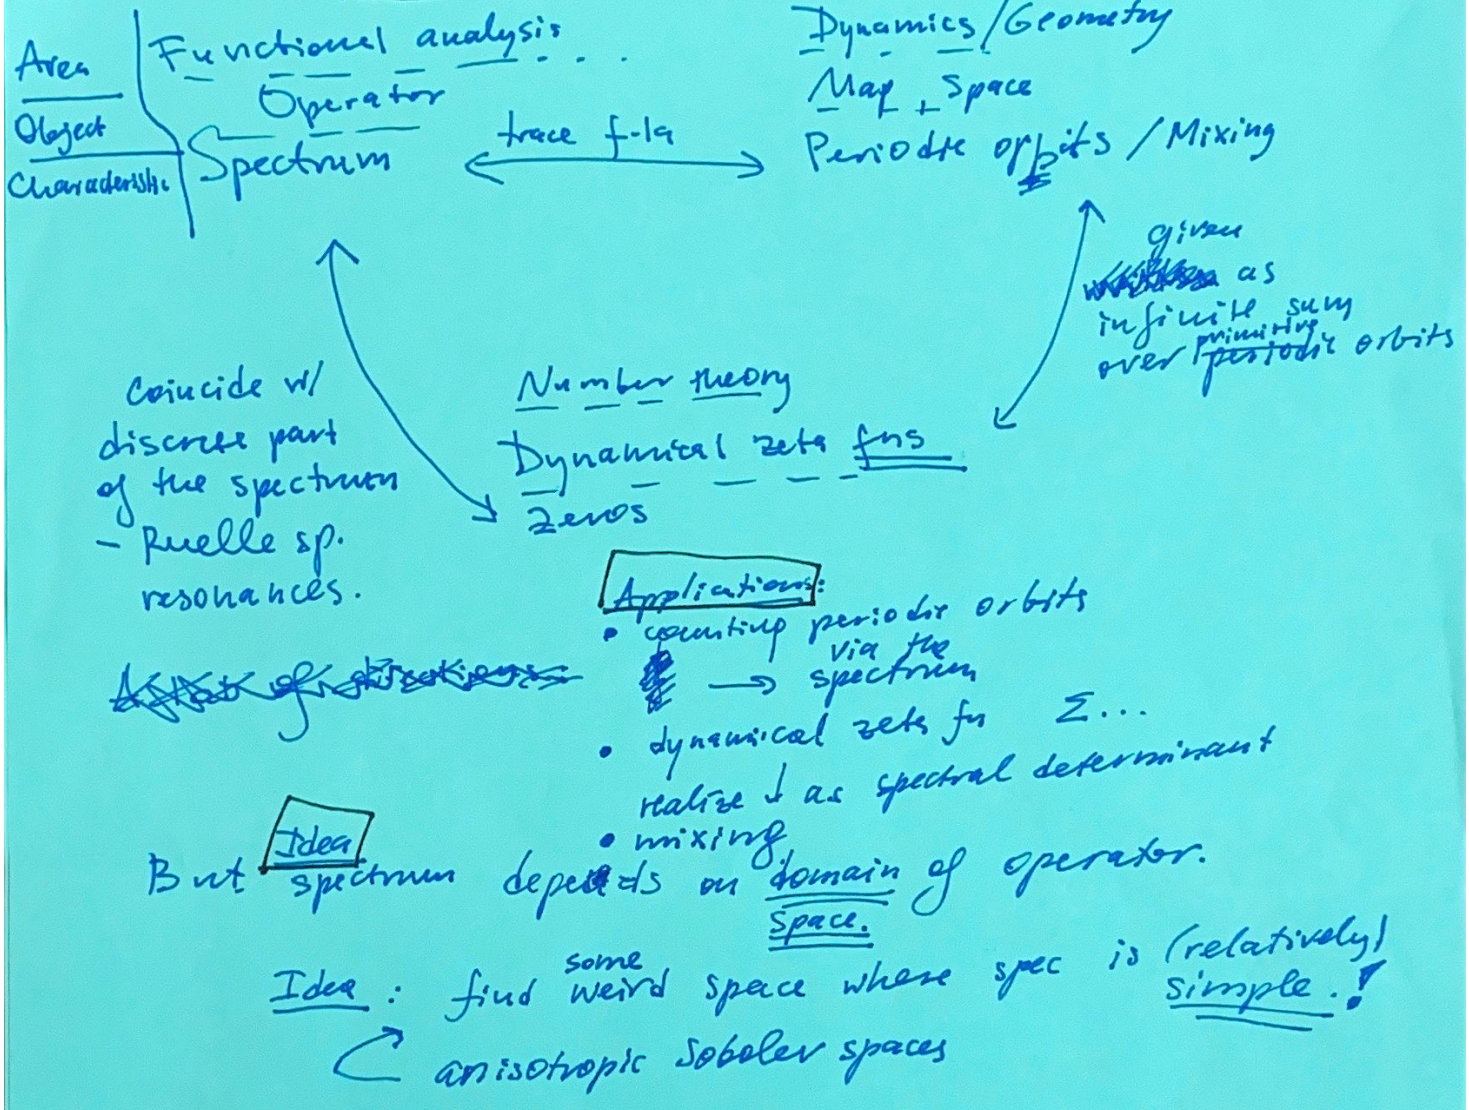 Area
Object
Characteristic
Functional analysis....
Operator
Spectrum
trace f-la
Dynamics/Geometry
Map + Space
Periodic orbits / Mixing
given
as
infinite sum
primitive
over periodic orbits
Coincide w/
discrete part
of the spectrum
- Ruelle sp.
resonances.
Number theory
Dynamical zeta fns
Zeros
Applications:
• counting periodic orbits
via the
→ spectrum
• dynamical zeta fn Σ...
realize ↓ as spectral determinant
• mixing
Idea
But spectrum depends on domain of operator.
space.
some
Idea: find weird space where spec is (relatively)
simple.!
anisotropic Sobolev spaces